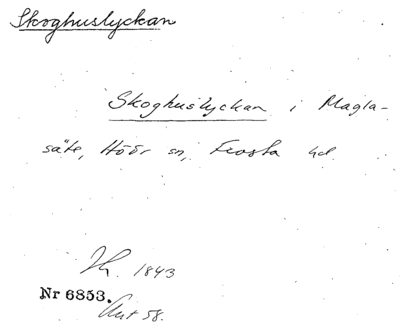 Skoghuslyckan
Skoghuslyckan i Magla-
säte, Höör sn, Frosta hd.
1843
Nr 6853.
Ant 58.